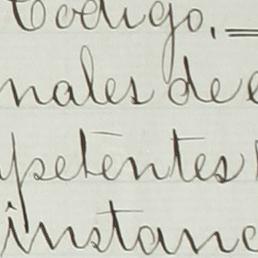 Codigo. =
nales de
petentes
instanc